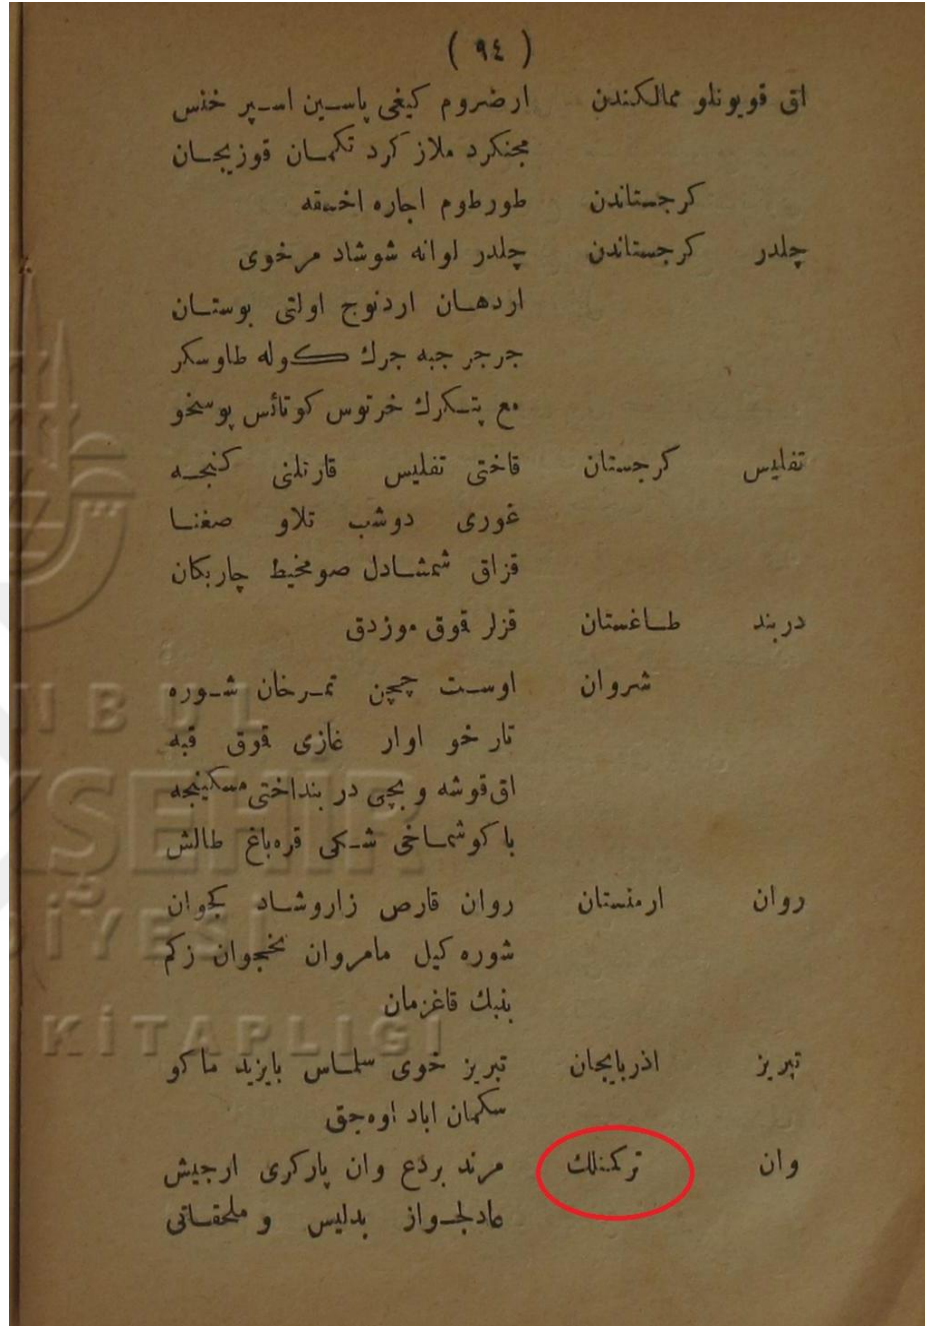 ( ٩٤ )
اق قویونلو ممالکندن ارضروم کیغی پاسین اسپر خنس
مجنکرد ملاز کرد تکمان قوزیجان
کرجستاندن طورطوم اجاره اخسقه
چلدر کرجستاندن چلدر لوانه شوشاد مرخوی
اردهان اردنوج اولتی بوستان
جرجر جبه جرك کوله طاوسکر
مع پتکرك خرتوس کوتائس پوسخو
تفلیس کرجستان قاختی تفلیس قارتلنی کنجه
غوری دوشب تلاو صغنا
قزاق شمشادل صومخیط چاربکان
دربند طاغستان قزلر قوق موزدق
شروان اوست چچن تمرخان شوره
تارخو اوار غازی قوق قبه
اق قوشه و بچی دربنداختی مسکینجه
باکو شماخی شکی قره باغ طالش
روان ارمنستان روان قارص زاروشاد کجوان
شوره کیل مامروان نخجوان زکم
بنبك قاغزمان
تبریز اذربایجان تبریز خوی سلماس بایزید ماکو
سکمان اباد اوه جق
وان ترکمنلك مرند بردع وان پارکری ارجیش
عادلجواز بدلیس و ملحقاتی
İSTANBUL
BÜYÜKŞEHİR
BELEDİYESİ
KİTAPLIĞI